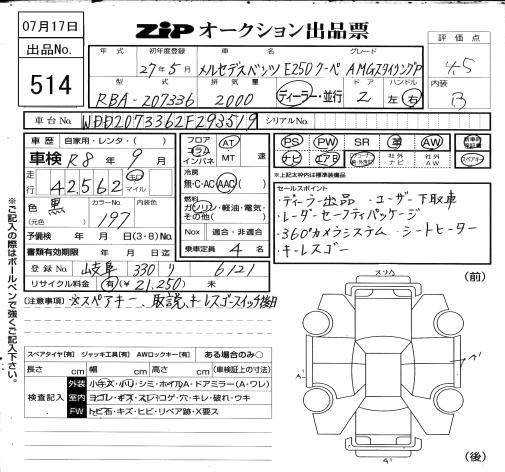 07月17日
ZIP オークション出品票
出品No.
514
年式 初年度登録 車名 グレード
27年5月 メルセデスベンツ E250クーペ AMGスタイリングP
型式 排気量 ドア ハンドル
RBA-207336 2000 ディーラー・並行 2 左 右
評価点
4.5
内装
B
車台No. WDD2073362F293519 シリアルNo.
車歴 自家用・レンタ・( )
車検 R8年9月
走行 42,562 km マイル
色 黒 カラーNo. 197 内装色
(元色)
予備検 年 月 日(3・8)No.
書類有効期限 年 月 日迄
登録No. 岐阜 330 り 6121
リサイクル料金 有(¥21,250) 未
フロア コラム インパネ
AT
MT 速
冷房
無・C・AC・AAC( )
燃料
ガソリン・軽油・電気・その他( )
Nox 適合・非適合
乗車定員 4 名
PS PW SR 革 AW
ナビ エアB 社外ナビ 社外AW
スペアキー
※上記太枠内は標準装備品
セールスポイント
・ディーラー出品 ・ユーザー下取車
・レーダーセーフティパッケージ
・360°カメラシステム ・シートヒーター
・キーレスゴー
[注意事項] ※スペアキー、取説、キーレスゴースイッチ後日
スペアタイヤ[有] ジャッキ工具[有] AWロックキー[有] ある場合のみ○
長さ cm 幅 cm 高さ cm (車検証上の寸法)
検査記入
外装 小キズ・小ハリ・シミ・ホイルA・ドアミラー(A・ワレ)
室内 ヨゴレ・キズ・スレ・コゲ・穴・キレ・破れ・ウキ
FW トビ石・キズ・ヒビ・リペア跡・X要ス
※ご記入の際はボールペンで強くご記入下さい。
(前)
(後)